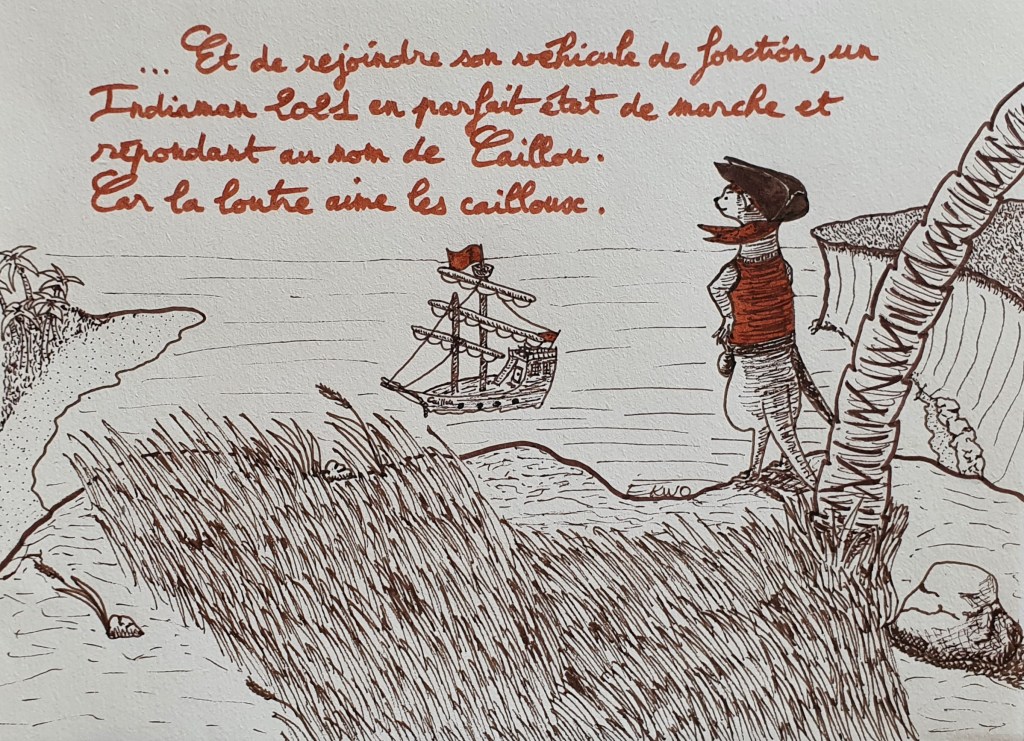 ... Et de rejoindre son véhicule de fonction, un
Indiaman 2021 en parfait état de marche et
répondant au nom de Caillou.
Car la loutre aime les cailloux.
Caillou
KWO